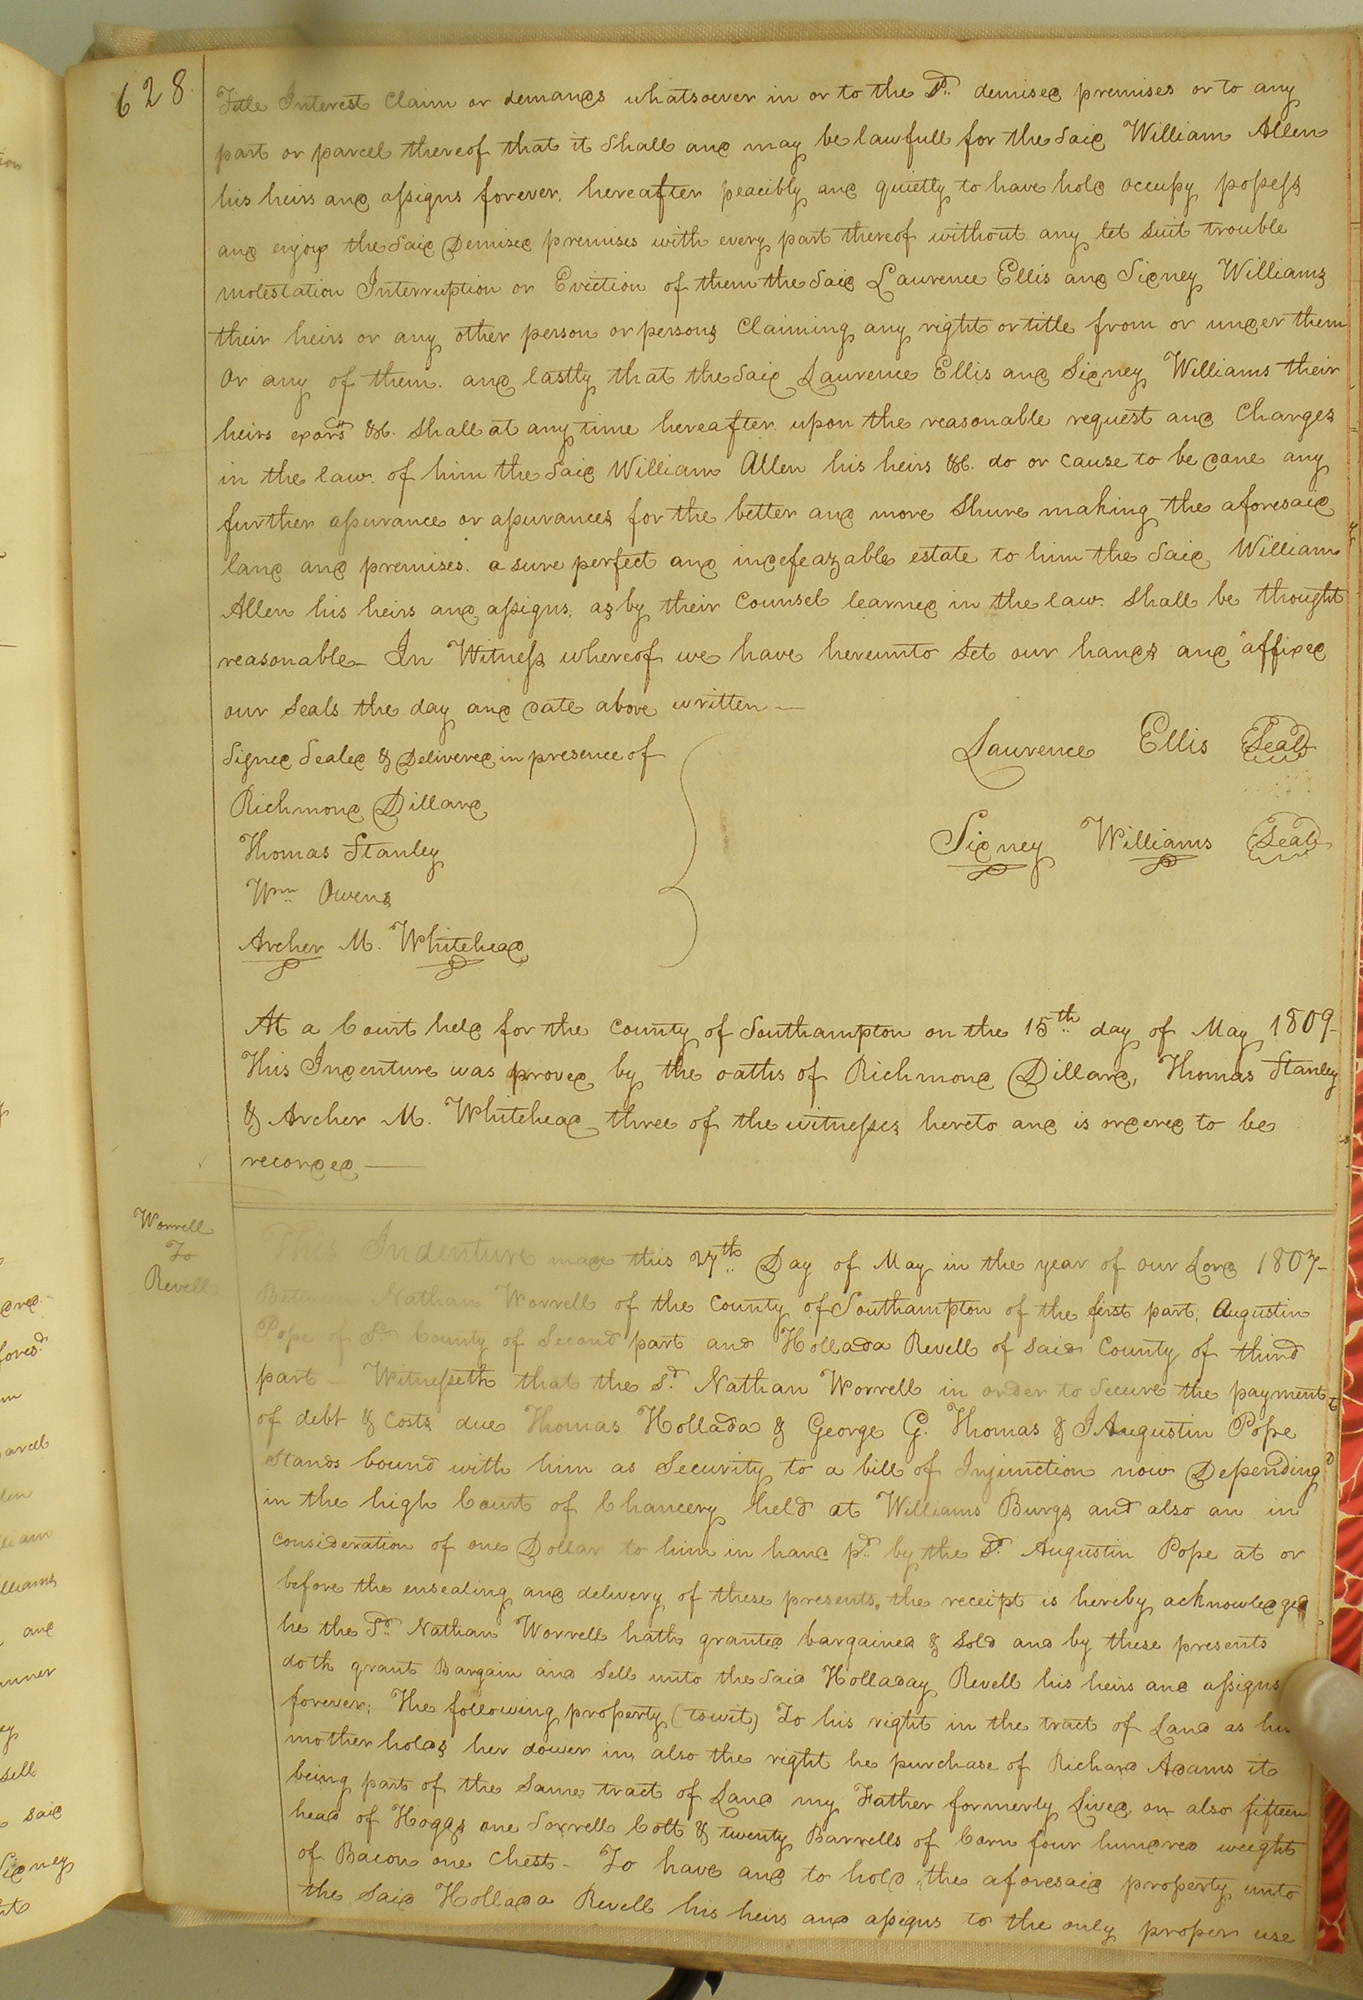 628
Title Interest Claim or demands whatsoever in or to the Sd. demised premises or to any
part or parcel thereof that it Shall and may be lawfull for the Said William Allen
his heirs and assigns forever, hereafter peacibly and quietly to have hold occupy possess
and enjoy the Said Demised premises with every part thereof without any let Suit trouble
molestation Interruption or Eviction of them the Said Laurence Ellis and Sidney Williams
their heirs or any other person or persons Claiming any right or title from or under them
Or any of them. and lastly that the Said Laurence Ellis and Sidney Williams their
heirs exors &c. Shall at any time hereafter upon the reasonable request and Charges
in the law. of him the Said William Allen his heirs &c. do or cause to be done any
further assurance or assurances for the better and more Shure making the aforesaid
land and premises. a sure perfect and indefeazable estate to him the Said William
Allen his heirs and assigns, as by their Counsel learned in the law. Shall be thought
reasonable_ In Witness whereof we have hereunto Set our hands and affixed
our Seals the day and date above written—
Signed Sealed & Delivered in presence of
Richmond Dillard
Thomas Stanley
Wm. Owens
Archer M. Whitehead
Laurence Ellis Seal
Sidney Williams Seal
At a Court held for the County of Southampton on the 15th day of May 1809-
This Indenture was proved by the oaths of Richmond Dillard, Thomas Stanley
& Archer M. Whitehead three of the witnesses hereto and is ordered to be
recorded—
Worrell
To
Revell
This Indenture made this 27th Day of May in the year of our Lord 1807-
Between Nathan Worrell of the County of Southampton of the first part, Augustin
Pope of Sd County of Second part and Hollada Revell of Said County of third
part — Witnesseth that the Sd. Nathan Worrell in order to Secure the payment
of debt & Costs due Thomas Hollada & George G. Thomas & J Augustin Pope
Stands bound with him as Security to a bill of Injunction now Depending
in the high Court of Chancery held at Williams Burgs and also an in
consideration of one Dollar to him in hand pd. by the Sd. Augustin Pope at or
before the ensealing and delivery of these presents, the receipt is hereby acknowledged
he the Sd. Nathan Worrell hath granted bargained & Sold and by these presents
doth grant Bargain and Sell unto the Said Holladay Revell his heirs and assigns
forever; The following property (towit) To his right in the tract of Land as his
mother holds her dower in, also the right he purchase of Richard Adams it
being part of the Same tract of Land my Father formerly Lived on also fifteen
head of Hoggs one Sorrell Colt & twenty Barrells of Corn four hundred weight
of Bacon one Chest - To have and to hold the aforesaid property unto
the Said Hollada Revell his heirs and assigns to the only proper use